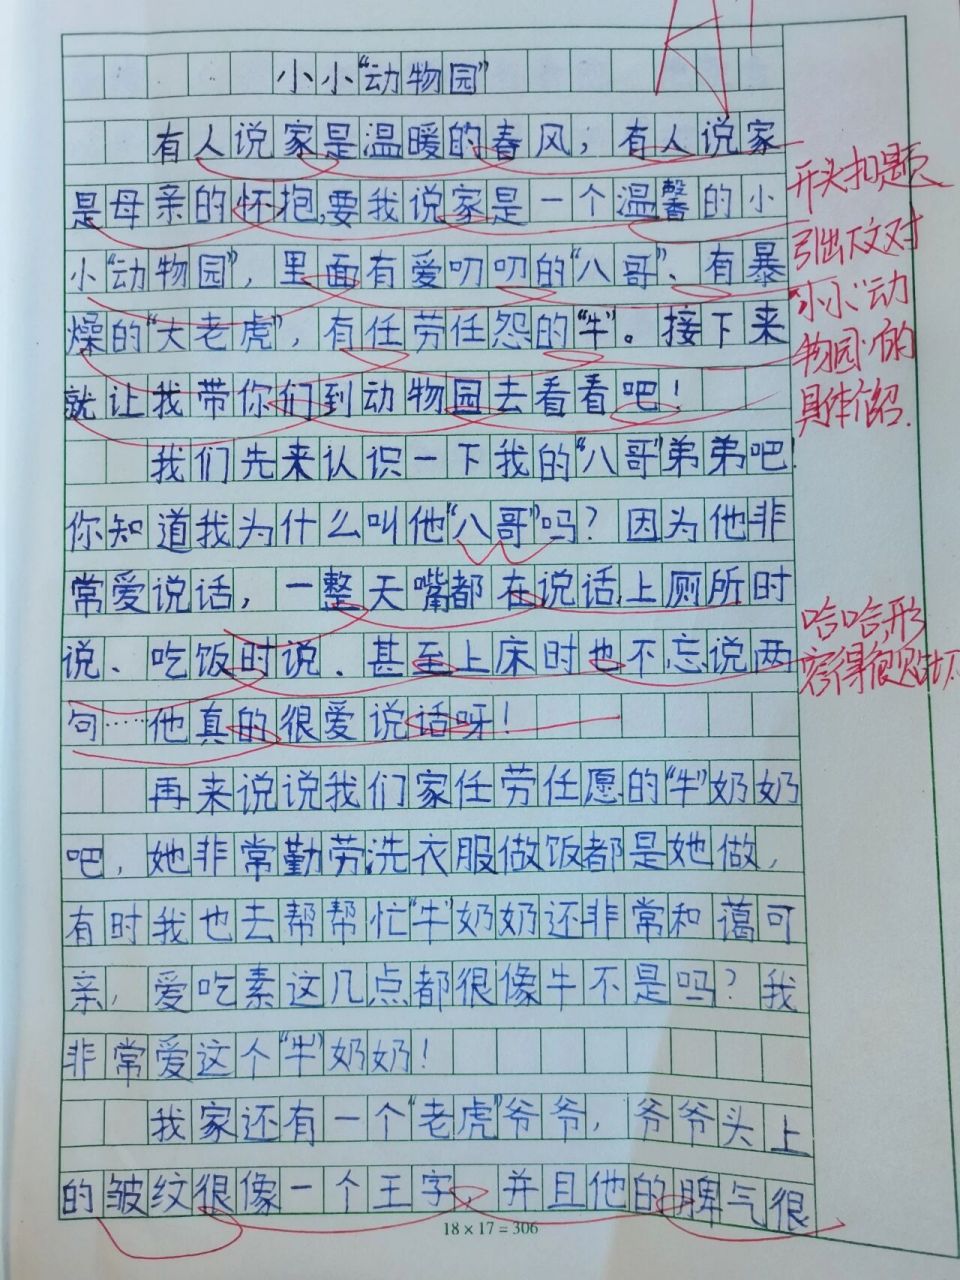 A+
小小“动物园”
有人说家是温暖的春风；有人说家
是母亲的怀抱,要我说家是一个温馨的小
小“动物园”，里面有爱叨叨的“八哥”、有暴
燥的“大老虎”，有任劳任怨的“牛”。接下来
就让我带你们到动物园去看看吧！
我们先来认识一下我的“八哥”弟弟吧！
你知道我为什么叫他“八哥”吗？因为他非
常爱说话，一整天嘴都在说话,上厕所时
说、吃饭时说、甚至上床时也不忘说两
句……他真的很爱说话呀！
再来说说我们家任劳任愿的“牛”奶奶
吧，她非常勤劳,洗衣服做饭都是她做，
有时我也去帮帮忙“牛”奶奶还非常和蔼可
亲，爱吃素这几点都很像牛不是吗？我
非常爱这个“牛”奶奶！
我家还有一个“老虎”爷爷，爷爷头上
的皱纹很像一个王字，并且他的脾气很
18×17=306
开头扣题
引出下文对
“小小“动
物园”的
具体介绍.
哈哈,形
容得很贴切